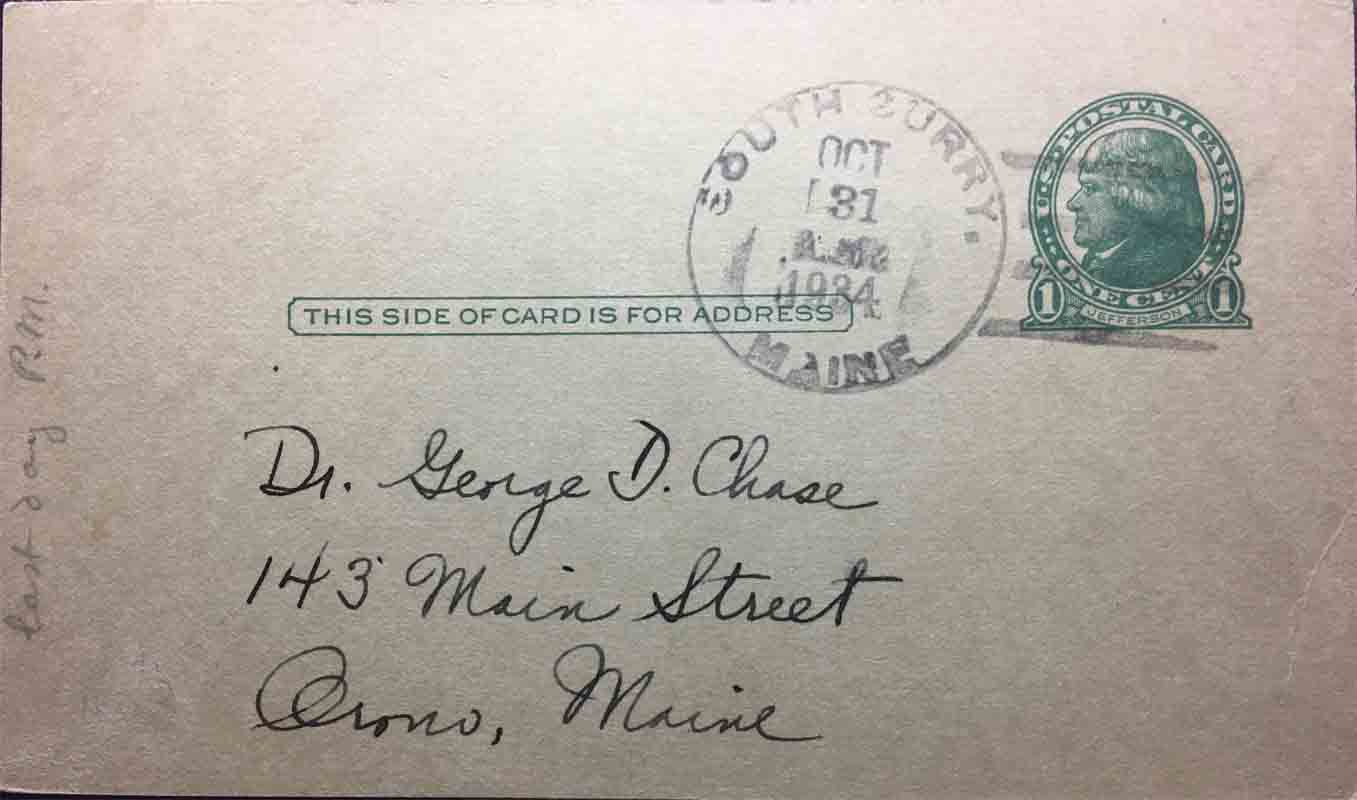 SOUTH SURRY.
OCT
31
1934
MAINE
U.S. POSTAL CARD
ONE CENT
1 JEFFERSON 1
THIS SIDE OF CARD IS FOR ADDRESS
Dr. George D. Chase
143 Main Street
Orono, Maine
Last day P.M.